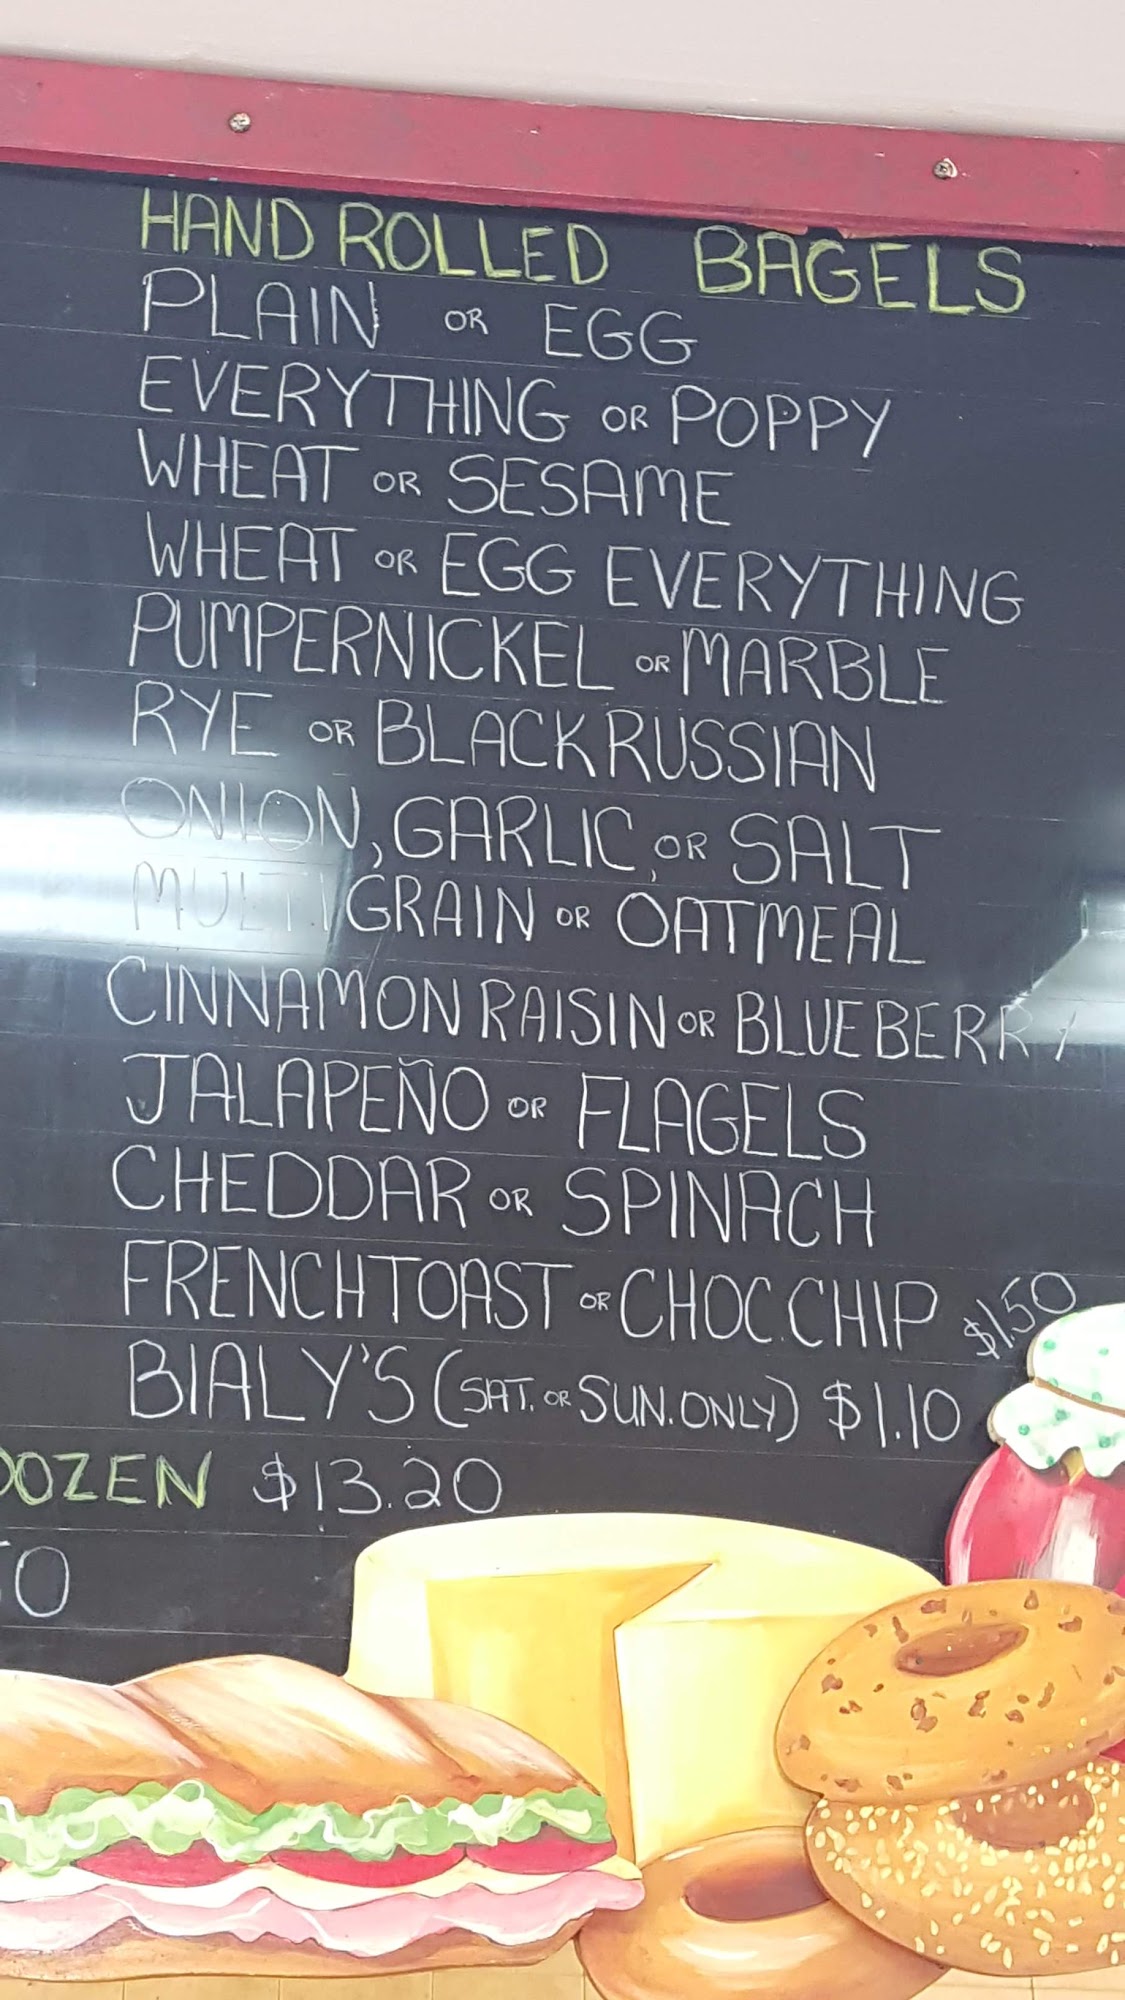 HAND ROLLED BAGELS
PLAIN OR EGG
EVERYTHING OR POPPY
WHEAT OR SESAME
WHEAT OR EGG EVERYTHING
PUMPERNICKEL OR MARBLE
RYE OR BLACK RUSSIAN
ONION, GARLIC, OR SALT
MULTIGRAIN OR OATMEAL
CINNAMON RAISIN OR BLUEBERRY
JALAPEÑO OR FLAGELS
CHEDDAR OR SPINACH
FRENCH TOAST OR CHOC. CHIP $1.50
BIALY'S (SAT. OR SUN. ONLY) $1.10
DOZEN $13.20